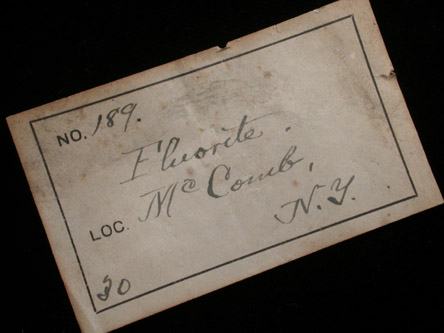 NO. 189.
Fluorite.
LOC. Mc Comb,
N.Y.
30